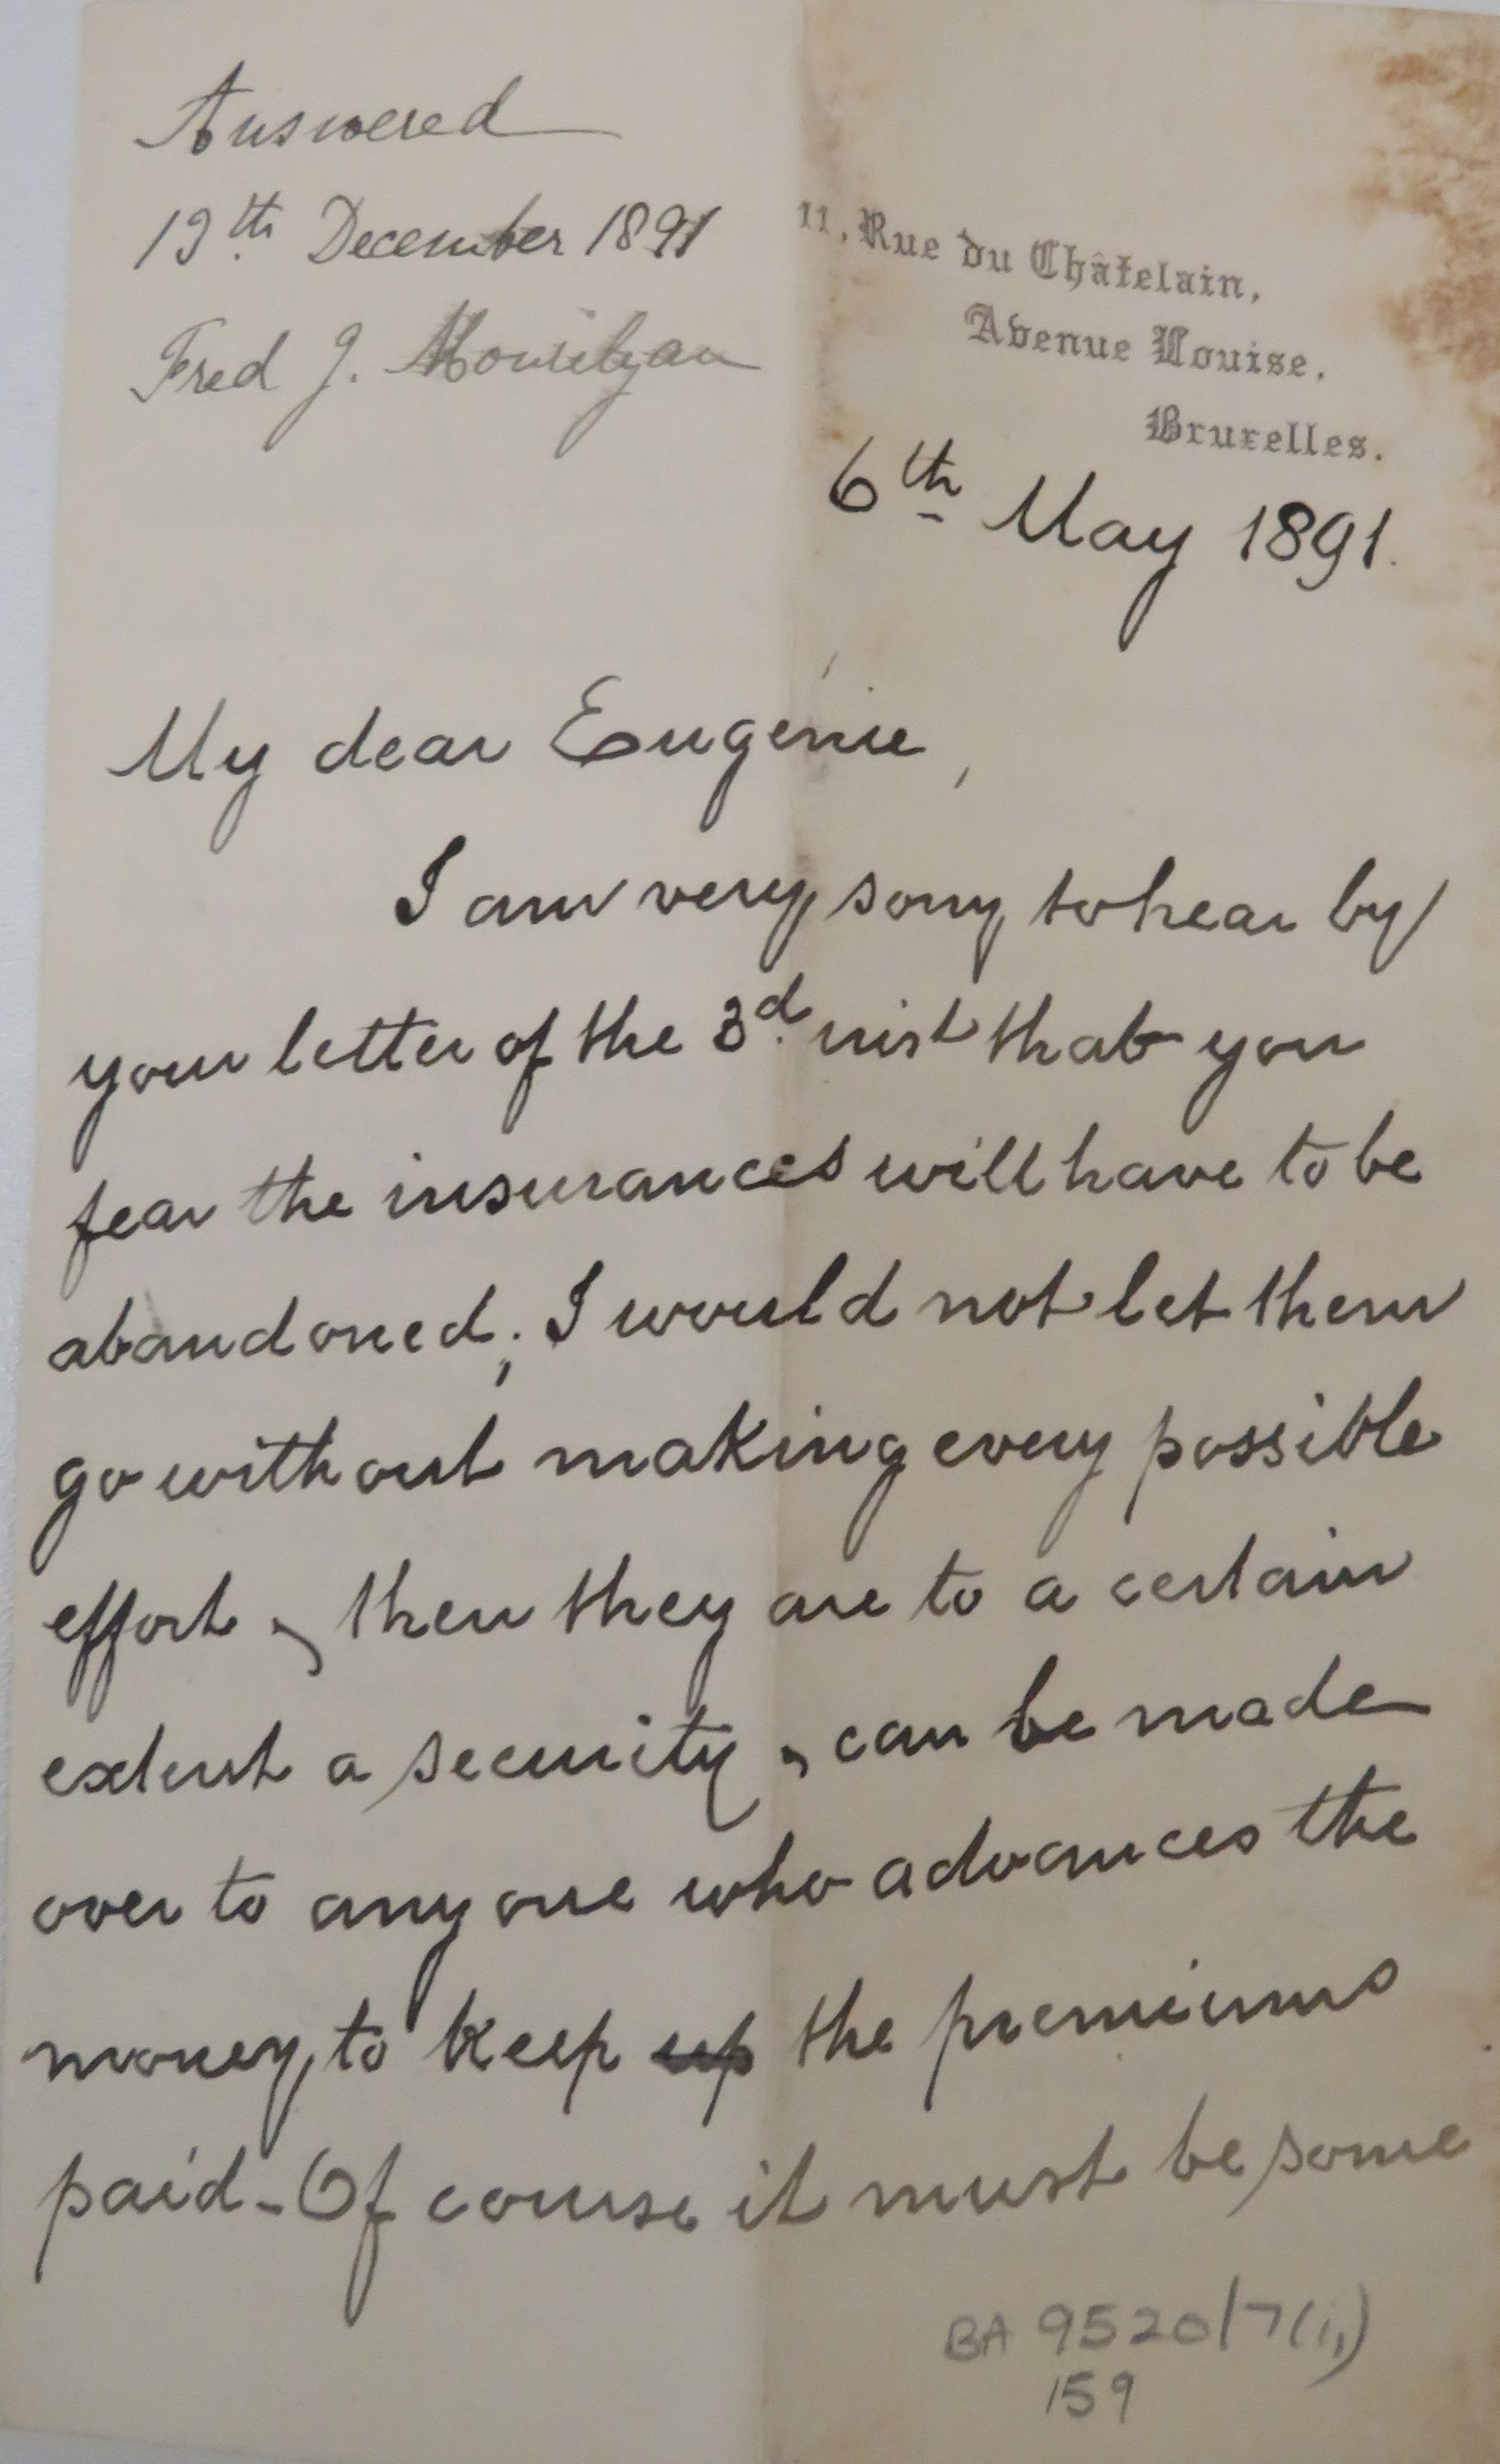 Answered
19th December 1891
Fred J. Mouilyan
11, Rue du Châtelain,
Avenue Louise,
Bruxelles.
6th May 1891.
My dear Eugenie,
I am very sorry to hear by
your letter of the 3d. inst that you
fear the insurances will have to be
abandoned; I would not let them
go without making every possible
effort, then they are to a certain
extent a security, can be made
over to any one who advances the
money, to keep up the premiums
paid - Of course it must be some
BA 9520/7(i,)
159